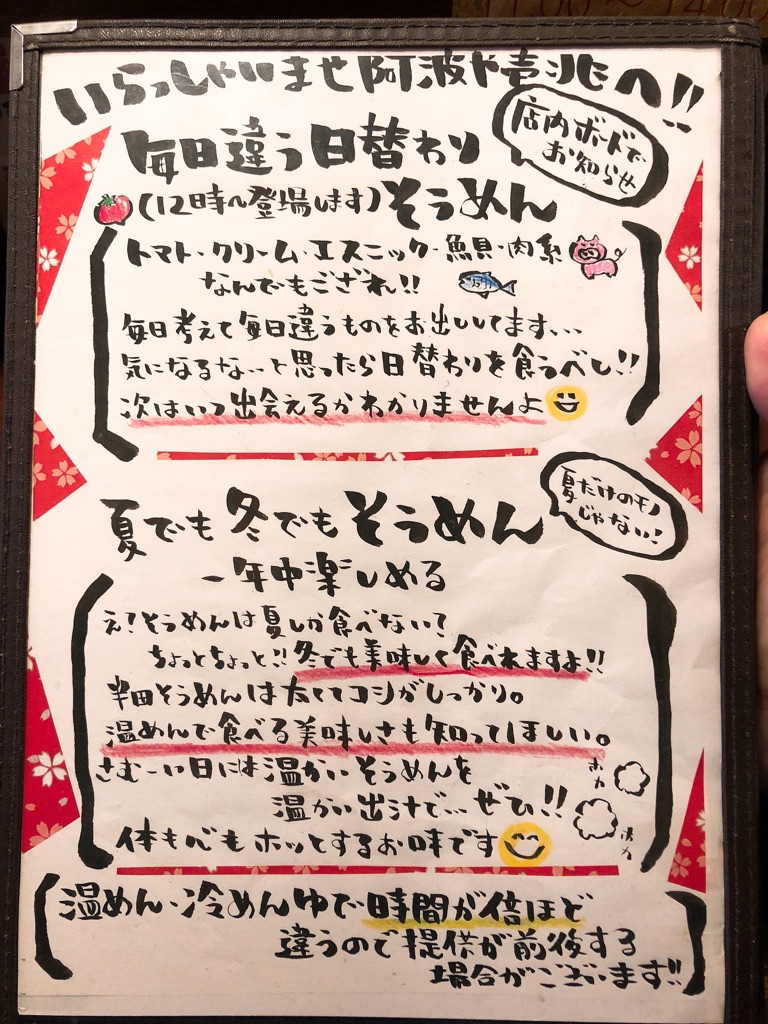 いらっしゃいませ阿波や壱兆へ!!
店内ボードで
お知らせ
毎日違う日替わり
(12時〜登場します)そうめん
トマト・クリーム・エスニック・魚貝・肉系
なんでもござれ!!
毎日考えて毎日違うものをお出ししてます、、、
気になるな、、と思ったら日替わりを食うべし!!
次はいつ出会えるかわかりませんよ
夏だけのモノ
じゃない!
夏でも冬でもそうめん
一年中楽しめる
え?そうめんは夏しか食べない?
ちょっとちょっと!!冬でも美味しく食べれますよ!!
半田そうめんは太くてコシがしっかり。
温めんで食べる美味しさも知ってほしい。
さむーい日には温かいそうめんを
ホカ
温かい出汁で...ぜひ!!
ホカ
体も心もホッとするお味です
温めん・冷めんゆで時間が倍ほど
違うので提供が前後する
場合がございます!!